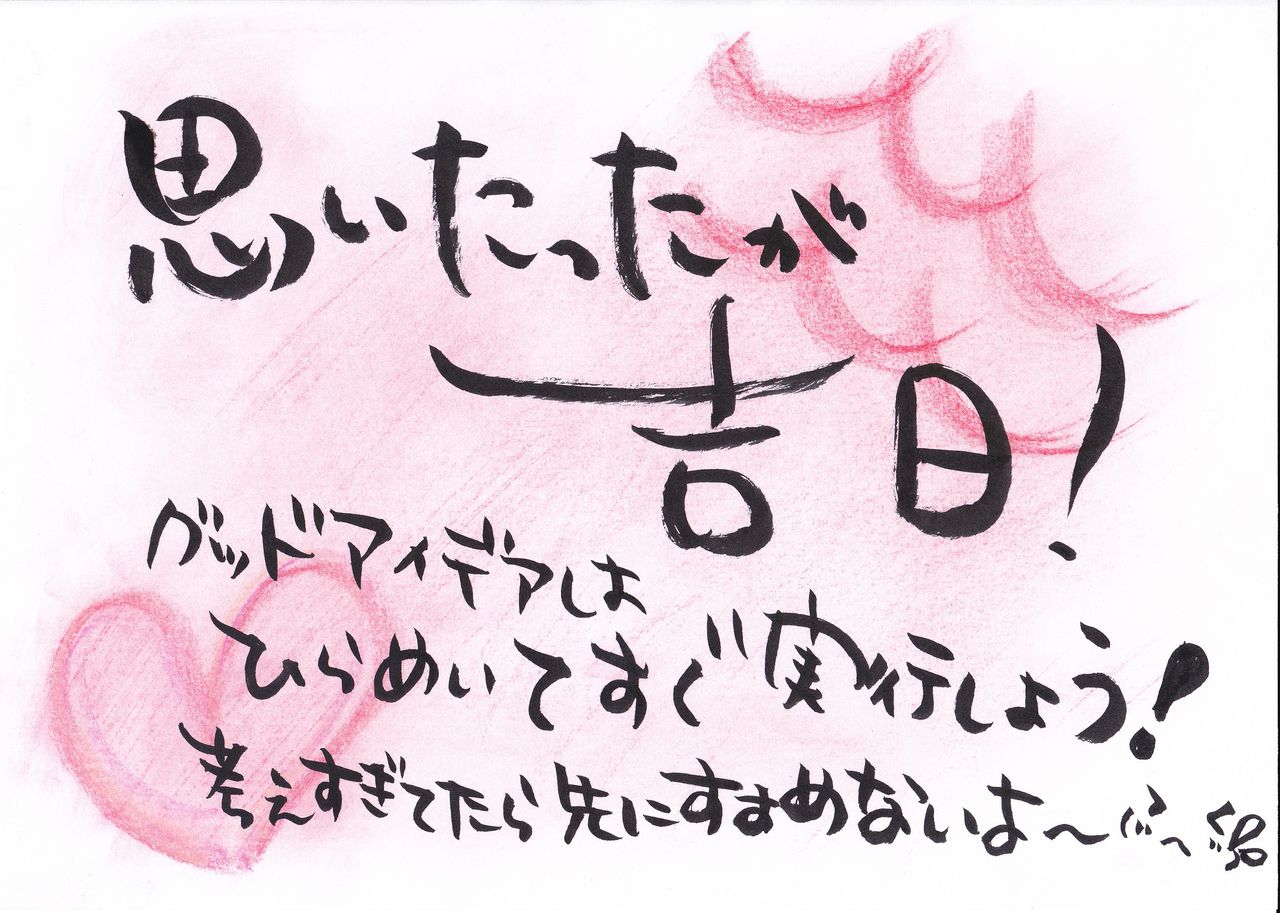 思いたったが
吉日!
グッドアイデアは
ひらめいてすぐ実行しよう!
考えすぎてたら先にすすめないよ〜